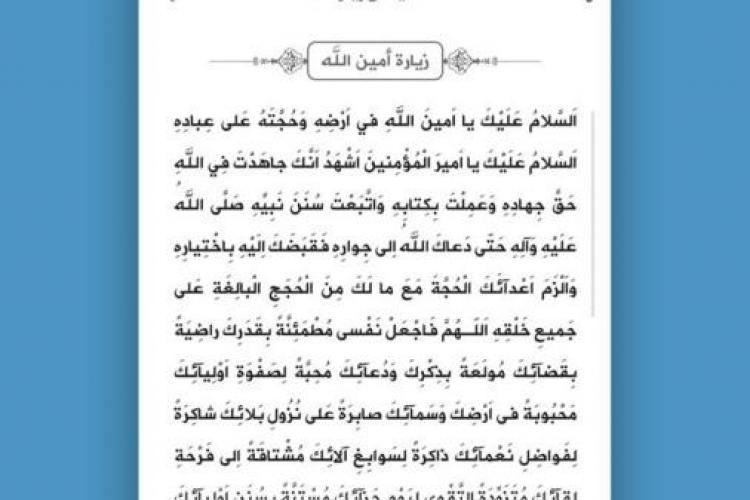 زيارة أمين اللَّه
اَلسَّلامُ عَلَيْكَ يا اَمينَ اللَّهِ في اَرْضِهِ وَحُجَّتَهُ عَلى عِبادِهِ
اَلسَّلامُ عَلَيْكَ يا اَميرَ الْمُؤْمِنينَ اَشْهَدُ اَنَّكَ جاهَدْتَ فِي اللَّهِ
حَقَّ جِهادِهِ وَعَمِلْتَ بِكِتابِهِ وَاتَّبَعْتَ سُنَنَ نَبِيِّهِ صَلَّى اللَّهُ
عَلَيْهِ وَآلِهِ حَتّى دَعاكَ اللَّهُ اِلى جِوارِهِ فَقَبَضَكَ اِلَيْهِ بِاخْتِيارِهِ
وَاَلْزَمَ اَعْدآئَكَ الْحُجَّةَ مَعَ ما لَكَ مِنَ الْحُجَجِ الْبالِغَةِ عَلى
جَميعِ خَلْقِهِ اَللَّـهُمَّ فَاجْعَلْ نَفْسى مُطْمَئِنَّةً بِقَدَرِكَ راضِيَةً
بِقَضآئِكَ مُولَعَةً بِذِكْرِكَ وَدُعآئِكَ مُحِبَّةً لِصَفْوَةِ اَوْلِيآئِكَ
مَحْبُوبَةً فى اَرْضِكَ وَسَمآئِكَ صابِرَةً عَلى نُزُولِ بَلائِكَ شاكِرَةً
لِفَواضِلِ نَعْمآئِكَ ذاكِرَةً لِسَوابِغِ آلائِكَ مُشْتاقَةً اِلى فَرْحَةِ
لِقآئِكَ مُتَزَوِّدَةً التَّقْوى لِيَوْمِ جَزآئِكَ مُسْتَنَّةً بِسُنَنِ اَوْلِيآئِكَ